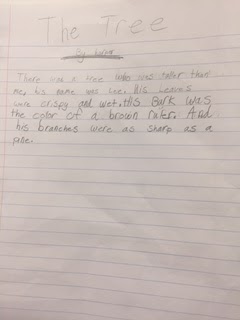 The Tree
There was a tree who was taller than
me, his name was Lee. His Leaves
were crispy and wet. His Bark was
the color of a brown ruler. And
his branches were as sharp as a
pine.